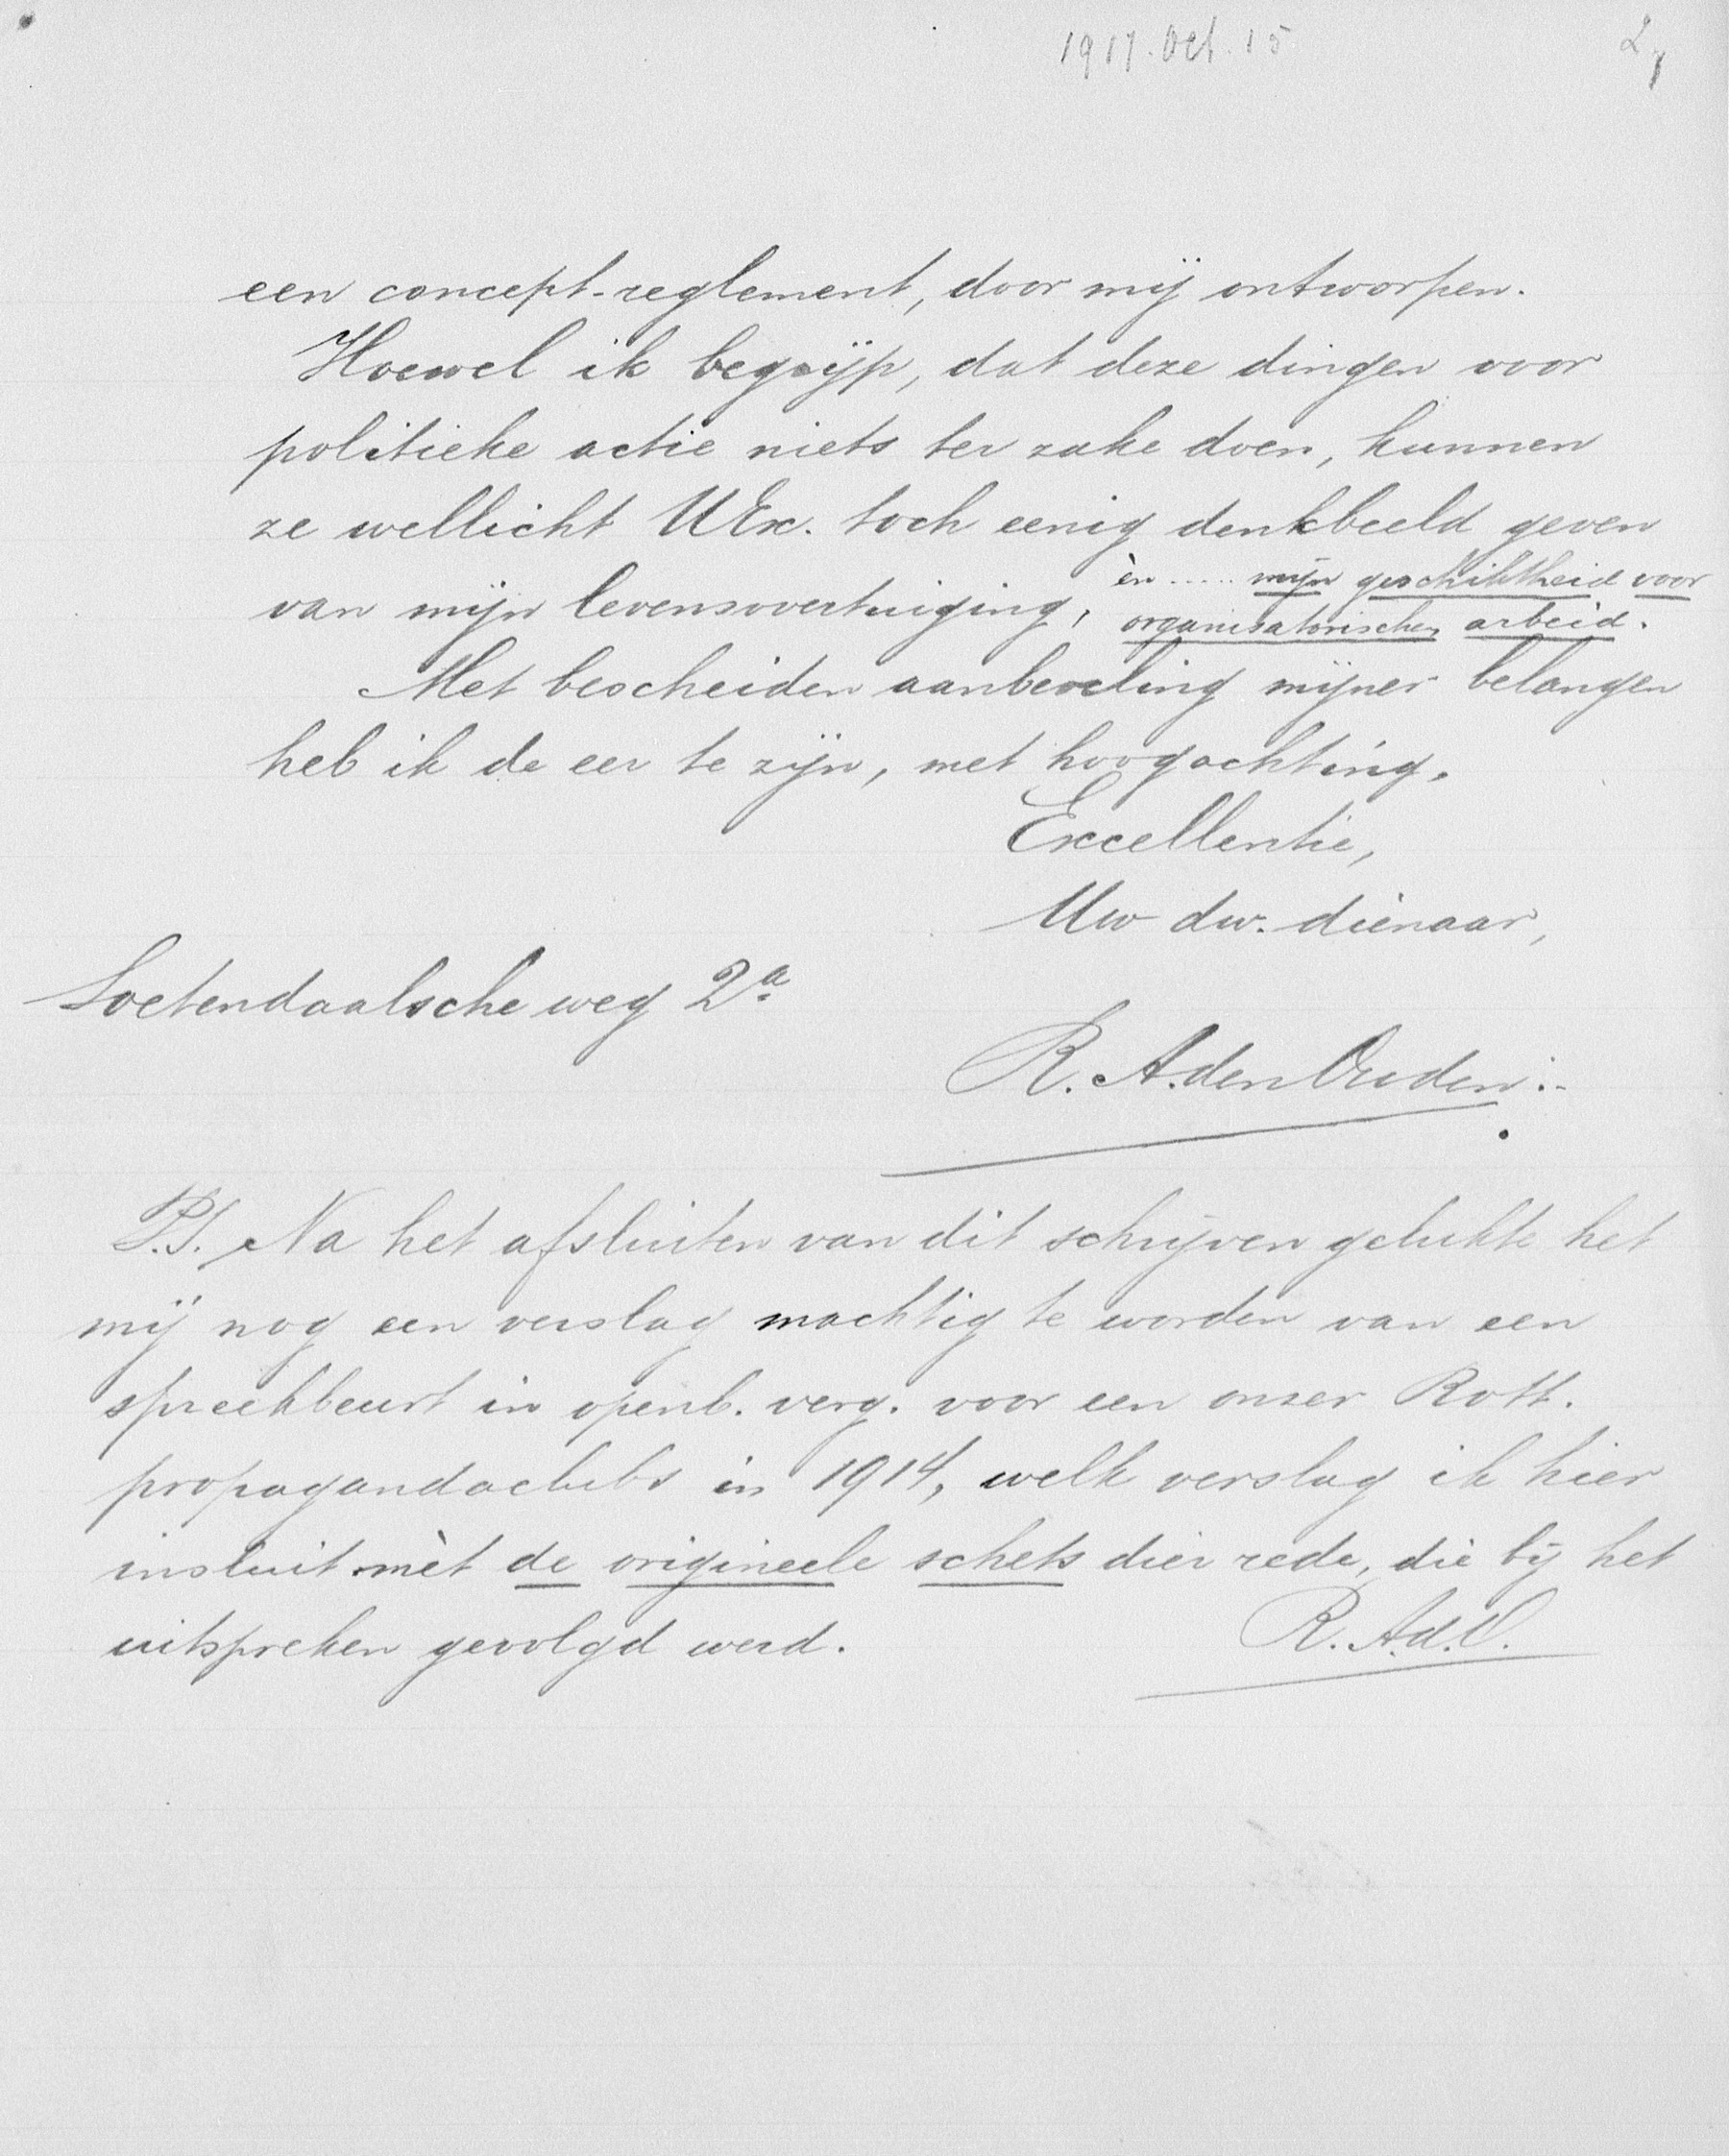 1917. Oct. 15
een concept-reglement, door mij ontworpen.
Hoewel ik begrijp, dat deze dingen voor
politieke actie niets ter zake doen, kunnen
ze wellicht UEx. toch eenig denkbeeld geven
van mijn levensovertuiging, èn ..... mijn geschiktheid voor
organisatorischen arbeid.
Met bescheiden aanbeveling mijner belangen
heb ik de eer te zijn, met hoogachting,
Excellentie,
Uw dw. dienaar,
Soetendaalsche weg 2a.
R. A. den Ouden.
P.S. Na het afsluiten van dit schrijven gelukte het
mij nog een verslag machtig te worden van een
spreekbeurt in openb. verg. voor een onzer Rott.
propagandaclubs in 1914, welk verslag ik hier
insluit mèt de origineele schets dier rede, die bij het
uitspreken gevolgd werd.
R. A. d. O.